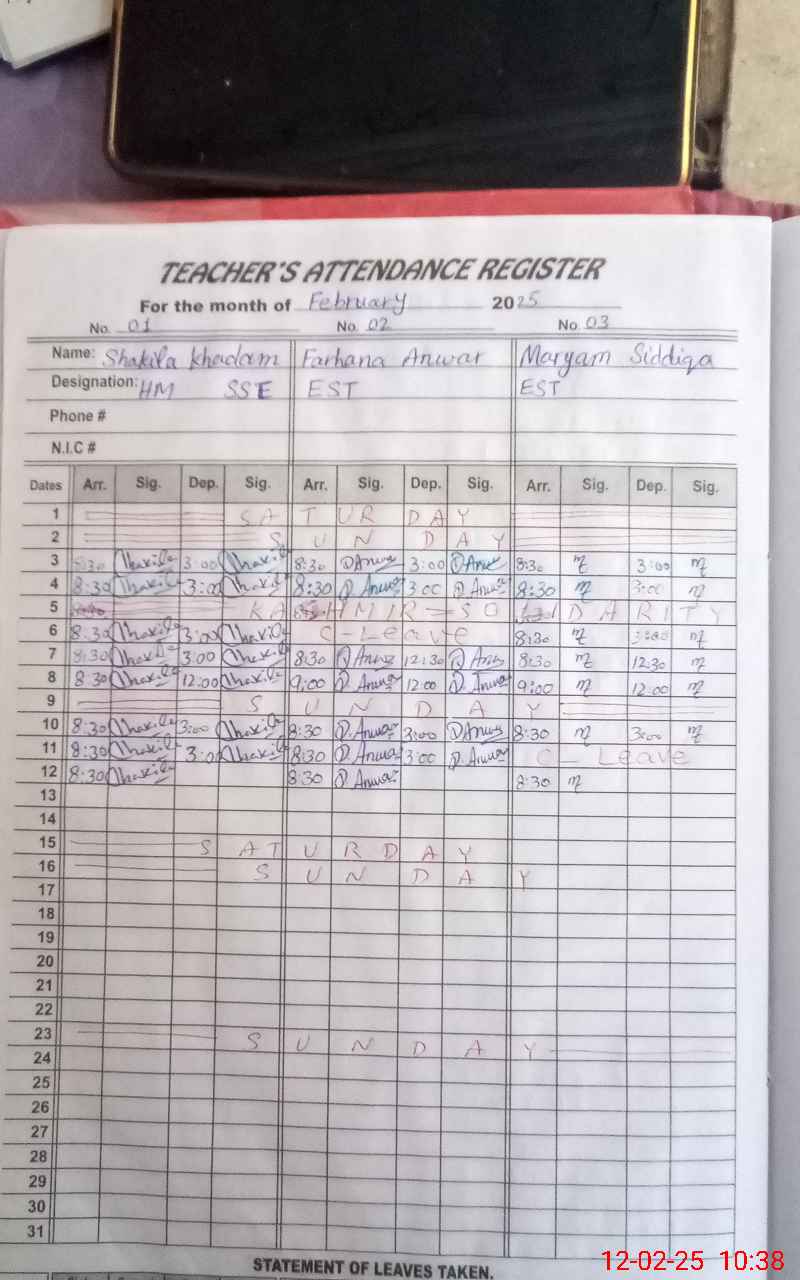 TEACHER'S ATTENDANCE REGISTER
For the month of February 2025
No. 01 No. 02 No. 03
Name: Shakila Khadam Farhana Anwar Maryam Siddiqa
Designation: HM SSE EST EST
Phone #
N.I.C #
Dates Arr. Sig. Dep. Sig. Arr. Sig. Dep. Sig. Arr. Sig. Dep. Sig.
1 SATURDAY
2 SUNDAY
3 8:30 Shakila 3:00 Shakila 8:30 Anwar 3:00 Anwar 8:30 3:00
4 8:30 Shakila 3:00 Shakila 8:30 Anwar 3:00 Anwar 8:30 3:00
5 KASHMIR SOLIDARITY
6 8:30 Shakila 3:00 Shakila C-Leave 8:30 3:00
7 8:30 Shakila 3:00 Shakila 8:30 Anwar 12:30 Anwar 8:30 12:30
8 8:30 Shakila 12:00 Shakila 9:00 Anwar 12:00 Anwar 9:00 12:00
9 SUNDAY
10 8:30 Shakila 3:00 Shakila 8:30 Anwar 3:00 Anwar 8:30 3:00
11 8:30 Shakila 3:0 Shakila 8:30 Anwar 3:00 Anwar C-Leave
12 8:30 Shakila 8:30 Anwar 8:30
13
14
15 SATURDAY
16 SUNDAY
17
18
19
20
21
22
23 SUNDAY
24
25
26
27
28
29
30
31
STATEMENT OF LEAVES TAKEN.
12-02-25 10:38